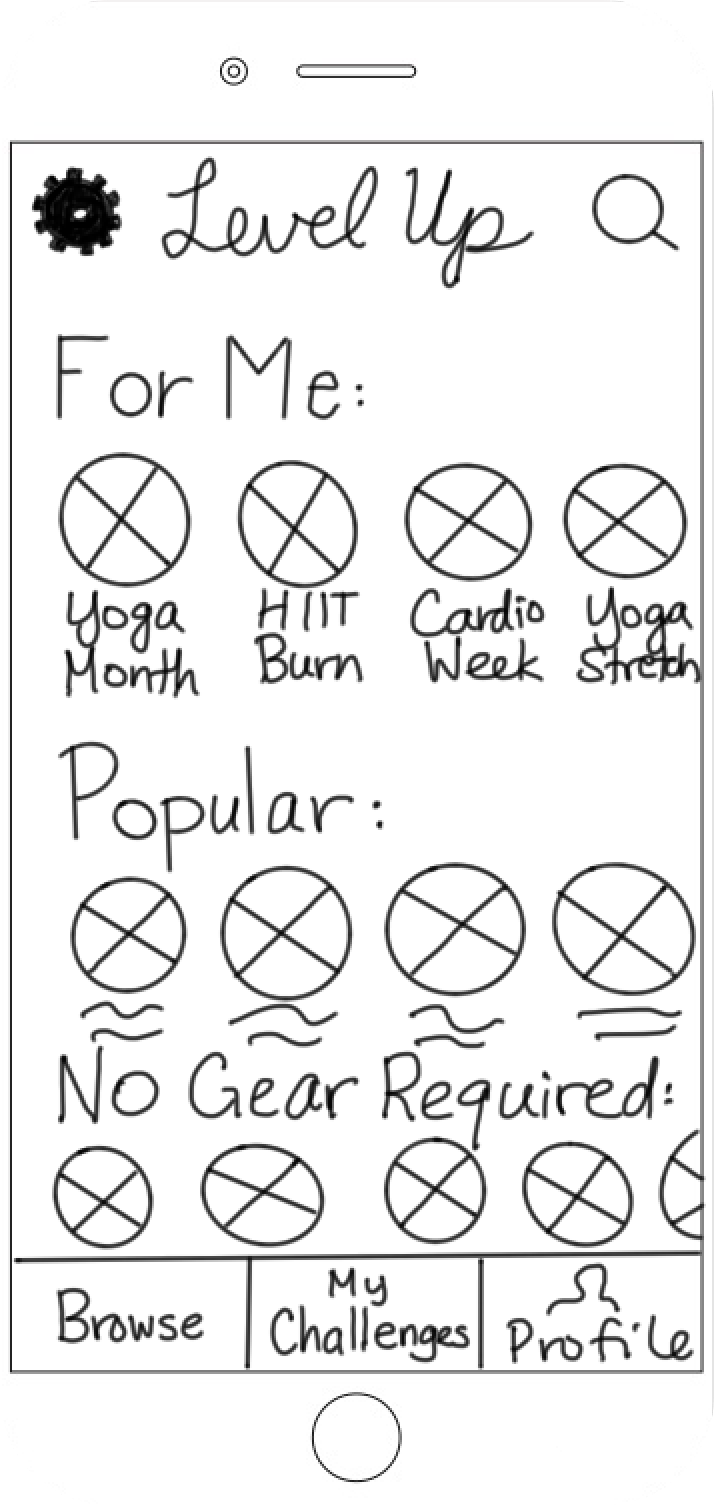 Level Up
For Me:
Yoga Month
HIIT Burn
Cardio Week
Yoga Stretch
Popular:
No Gear Required:
Browse
My Challenges
Profile